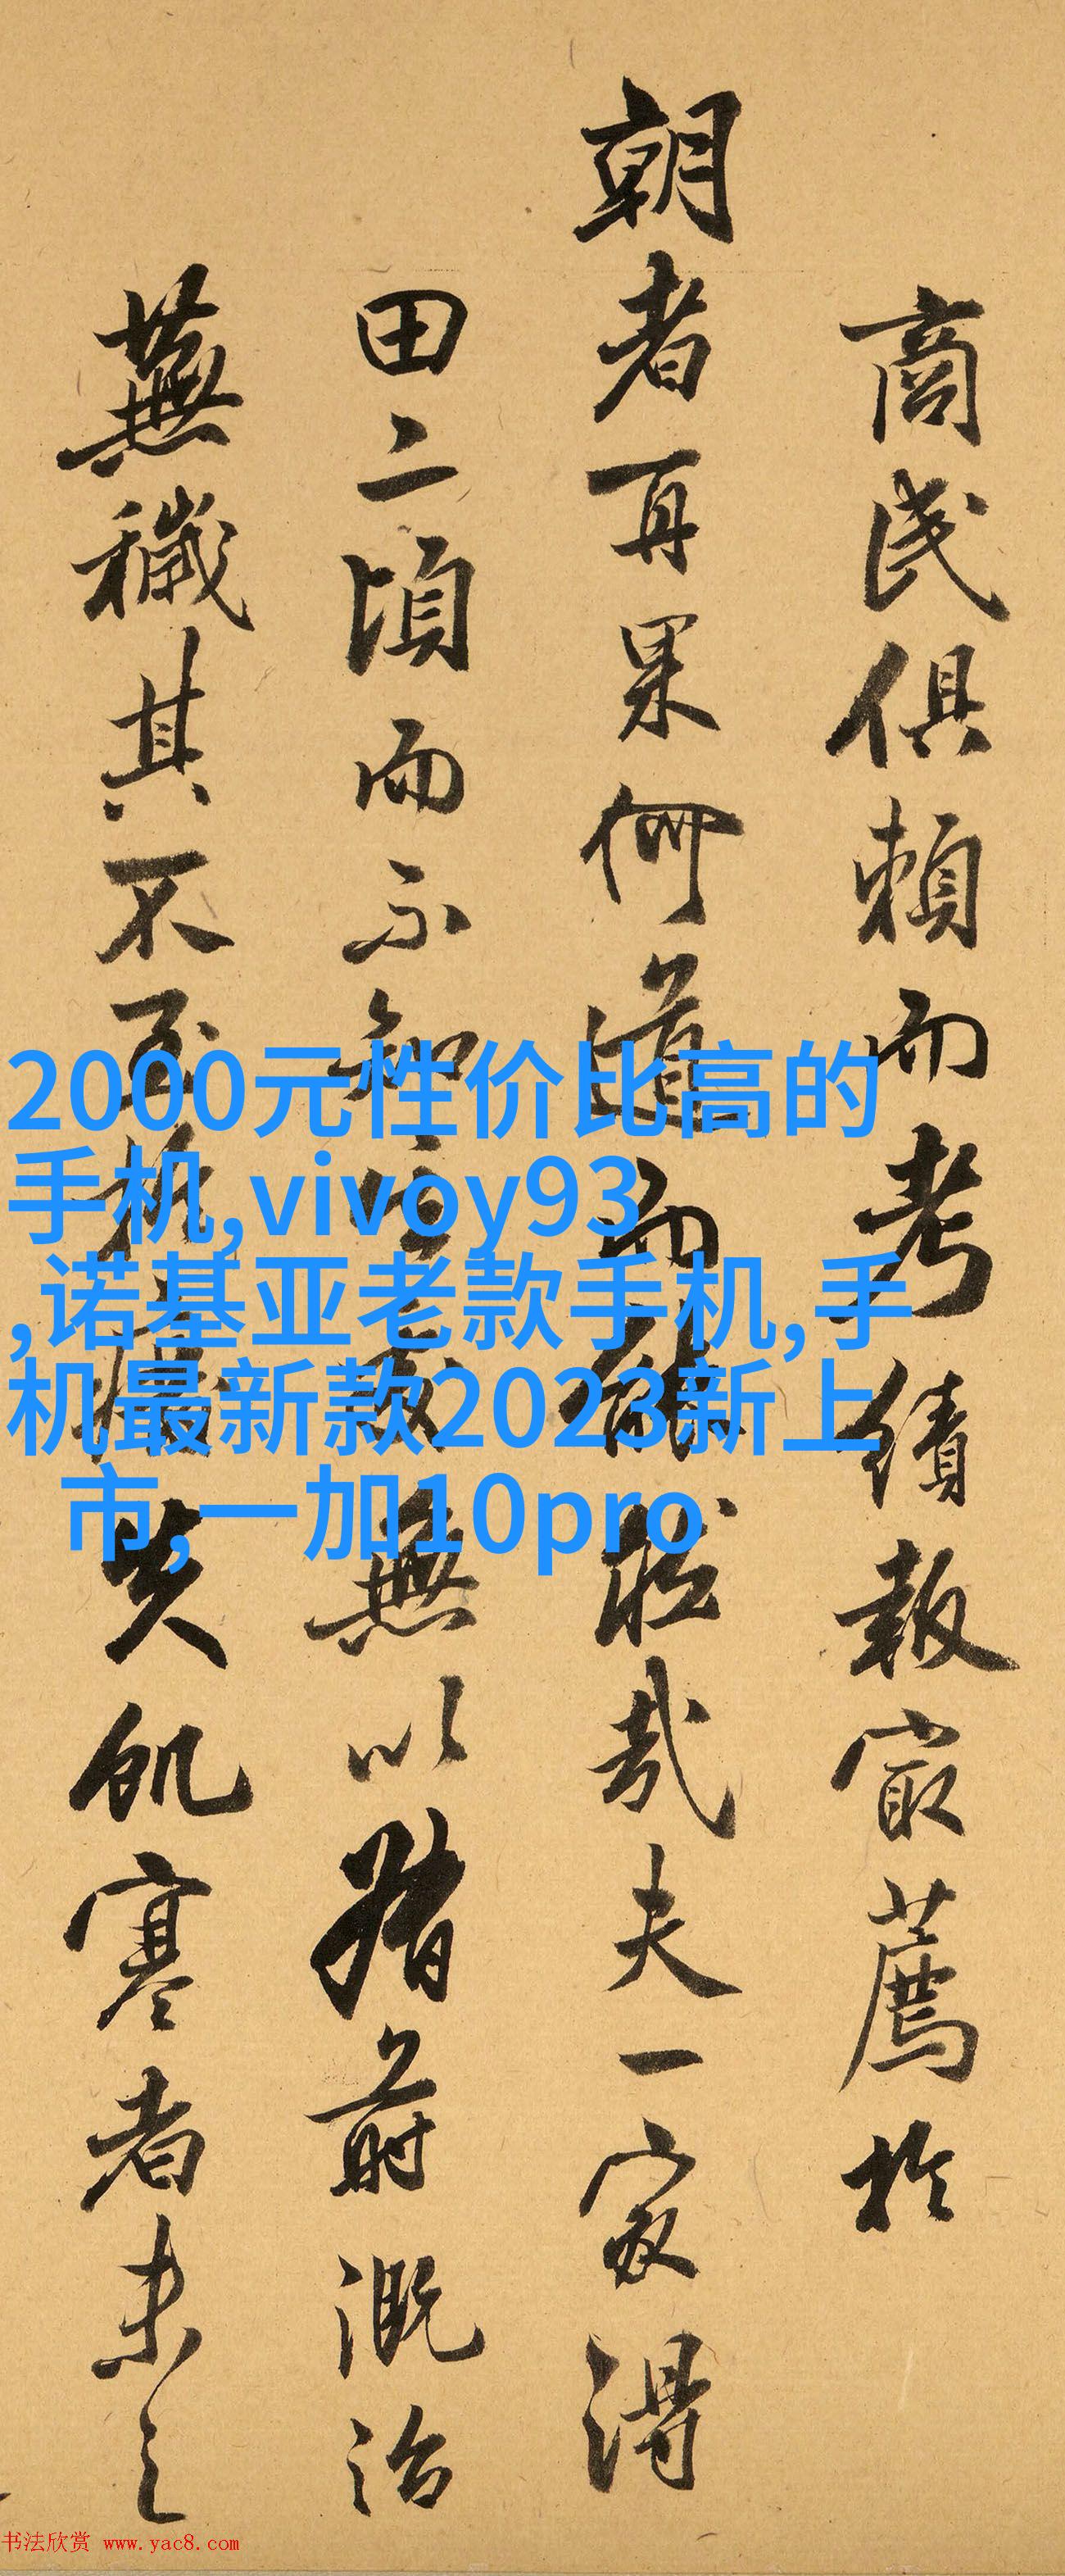 商民俱賴而考績報最薦於
朝者再果何道而能然哉夫一家得
田二頃而不知
無以
前溉治
蕪穢其不至於
失飢寒者未之
2000元性价比高的
手机,vivoy93
,诺基亚老款手机,手
机最新款2023新上
市,一加10pro
书法欣赏 www.yac8.com